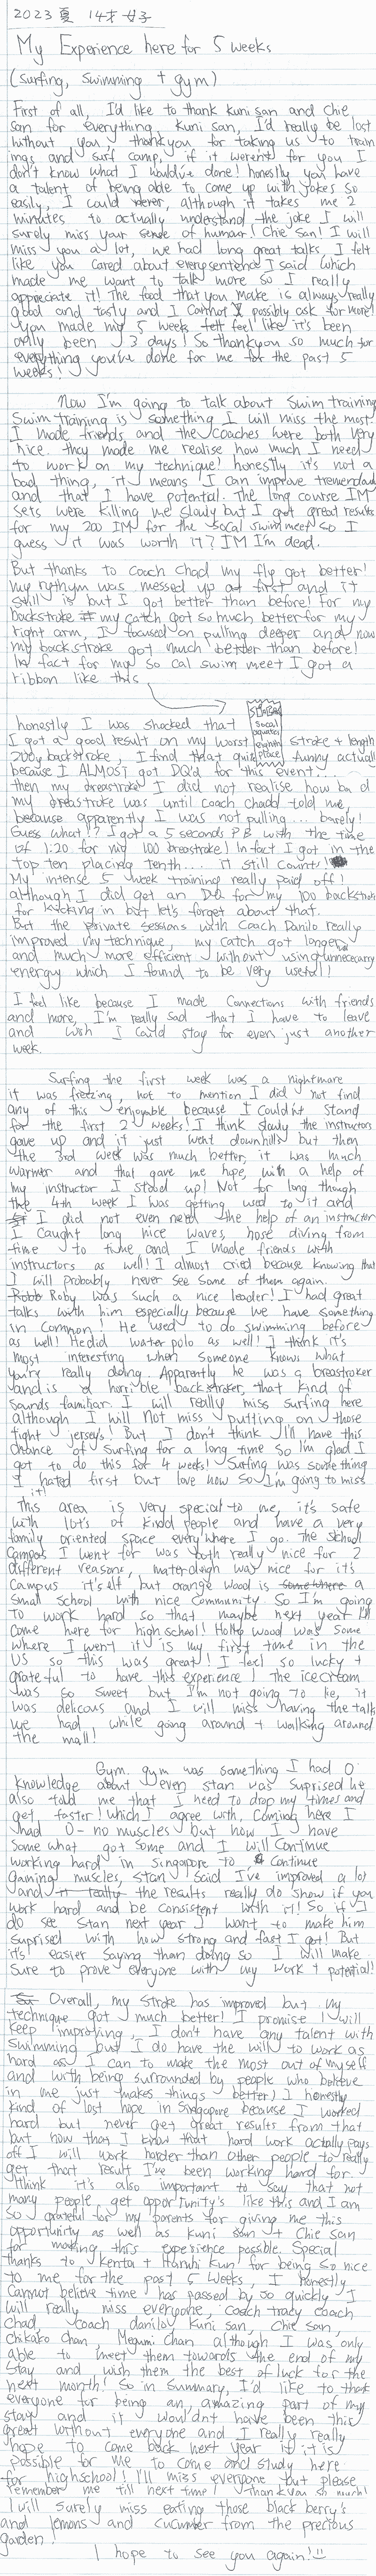 2023 夏 14才 女子
My Experience here for 5 weeks
(surfing, swimming + gym)
First of all, I'd like to thank kuni san and Chie
san for everything. Kuni san, I'd really be lost
without you, thankyou for taking us to train
ings and surf camp, if it weren't for you I
don't know what I would've done! honestly you have
a talent of being able to come up with jokes so
easily, I could never, although it takes me 2
minutes to actually understand the joke I will
surely miss your sense of humour! Chie San! I will
miss you a lot, we had long great talks, I felt
like you cared about everysentence I said which
made me want to talk more so I really
appreciate it! The food that you make is always really
good and tasty and I cannot possibly ask for more!
you made my 5 weeks felt feel like it's been
only been 3 days! So thankyou so much for
everything you've done for me for the past 5
weeks!
Now I'm going to talk about Swim training
Swim training is something I will miss the most.
I made friends, and the coaches were both very
nice. they made me realise how much I need
to work on my technique! honestly it's not a
bad thing, it means I can improve tremendad
and that I have potential. The long course IM
sets were killing me slowly but I got great results
for my 200 IM for the socal swim meet so I
guess it was worth it? IM I'm dead.
But thanks to coach Chad my fly got better!
my rythym was messed up at first and it
still is but I got better than before! for my
backstroke my catch got so much better for my
right arm, I focused on pulling deeper and now
my backstroke got much better than before!
In fact for my so cal swim meet I got a
ribbon like this
socal
eighth
place
honestly I was shocked that
I got a good result on my worst stroke + length
200y backstroke, I find that quite funny actually
because I ALMOST got DQ'd for this event...
then my breastroke I did not realise how bad
my breastroke was until coach chad told me,
because apparently I was not pulling... barely!
Guess what!? I got a 5 seconds PB with the time
of 1:20 for my 100 breastroke! In fact I got in the
top ten placing tenth... it still counts!
My intense 5 week training really paid off!
although I did get an DQ for my 100 backstroke
for kicking in but let's forget about that.
But the private sessions with Coach Danilo really
improved my technique, my catch got longer
and much more efficient without using unnececarry
energy which I found to be very useful!
I feel like because I made connections with friends
and more, I'm really sad that I have to leave
and wish I could stay for even just another
week.
Surfing the first week was a nightmare
it was freezing, not to mention I did not find
any of this enjoyable because I couldn't stand
for the first 2 weeks! I think slowly the instructors
gave up and it just went downhill but then
the 3rd week was much better, it was much
warmer and that gave me hope, with a help of
my instructor I stood up! Not for long though
the 4th week I was getting used to it and
I did not even need the help of an instructor
I caught long nice waves, nose diving from
time to time and I made friends with
instructors as well! I almost cried because knowing that
I will probably never see some of them again.
Roby was such a nice leader! I had great
talks with him especially because we have something
in common! He used to do swimming before
as well! He did water polo as well! I think it's
most interesting when someone knows what
you're really doing. Apparently he was a breastroker
and is a horrible backstroker, that kind of
sounds familiar. I will really miss surfing here
although I will not miss putting on those
tight jerseys! But I don't think I'll have this
chance of surfing for a long time so I'm glad I
got to do this for 4 weeks! Surfing was something
I hated first but love now so I'm going to miss
it!
This area is very special to me, it's safe
with lot's of kindd people and have a very
family oriented space everywhere I go. The School
Campas I went for was both really nice for 2
different reasons, materdaigh was nice for it's
Campus it's elf but orange wood is somewhere a
small school with nice community. So I'm going
to work hard so that maybe next year I'll
come here for highschool! Holly wood was some
where I went it is my first time in the
US so this was great! I feel so lucky +
grateful to have this experience! The icecream
was so sweet but I'm not going to lie, it
was delicous and I will miss having the talk
we had while going around + walking around
the mall!
Gym. gym was something I had 0
knowledge about even stan was suprised he
also told me that I need to drop my times and
get faster! Which I agree with, Coming here I
had 0 - no muscles but now I have
some what got some and I will Continue
working hard in Singapore to Continue
gaining muscles, stan said I've improved a lot
and it really the results really do show if you
work hard and be consistent with it! So if I
do see Stan next year I want to make him
suprised with how strong and fast I get! But
it's easier saying than doing so I will make
sure to prove everyone with my work + potential!
Overall, my stroke has improved but my
technique got much better! I promise I will
keep improving, I don't have any talent with
swimming but I do have the will to work as
hard as I can to make the most out of myself
and with being surrounded by people who believe
in me just makes things better) I honestly
kind of lost hope in Singapore because I worked
hard but never get great results from that
but now that I know that hard work actually pays
off I will work harder than other people to really
get that result I've been working hard for.
I think it's also important to say that not
many people get opportunity's like this and I am
so grateful for my parents for giving me this
opportunity as well as kuni san + Chie san
for making this experience possible. Special
thanks to Kenta + Haruhi Kun for being so nice
to me for the past 5 weeks, I honestly
cannot believe time has passed by so quickly I
will really miss everyone, coach tracy coach
chad, coach danilo, Kuni san, Chie san,
chikako chan, Megumi chan although I was only
able to meet them towards the end of my
stay and wish them the best of luck for the
next month! So in summary, I'd like to thank
everyone for being an amazing part of my
stay and it wouldn't have been this
great without everyone and I really really
hope to come back next year if it is
possible for me to come and study here
for highschool! I'll miss everyone but please
remember me till next time! Thank you so much!
I will surely miss eating those black berry's
and lemons and cucumber from the precious
garden!
I hope to see you again!